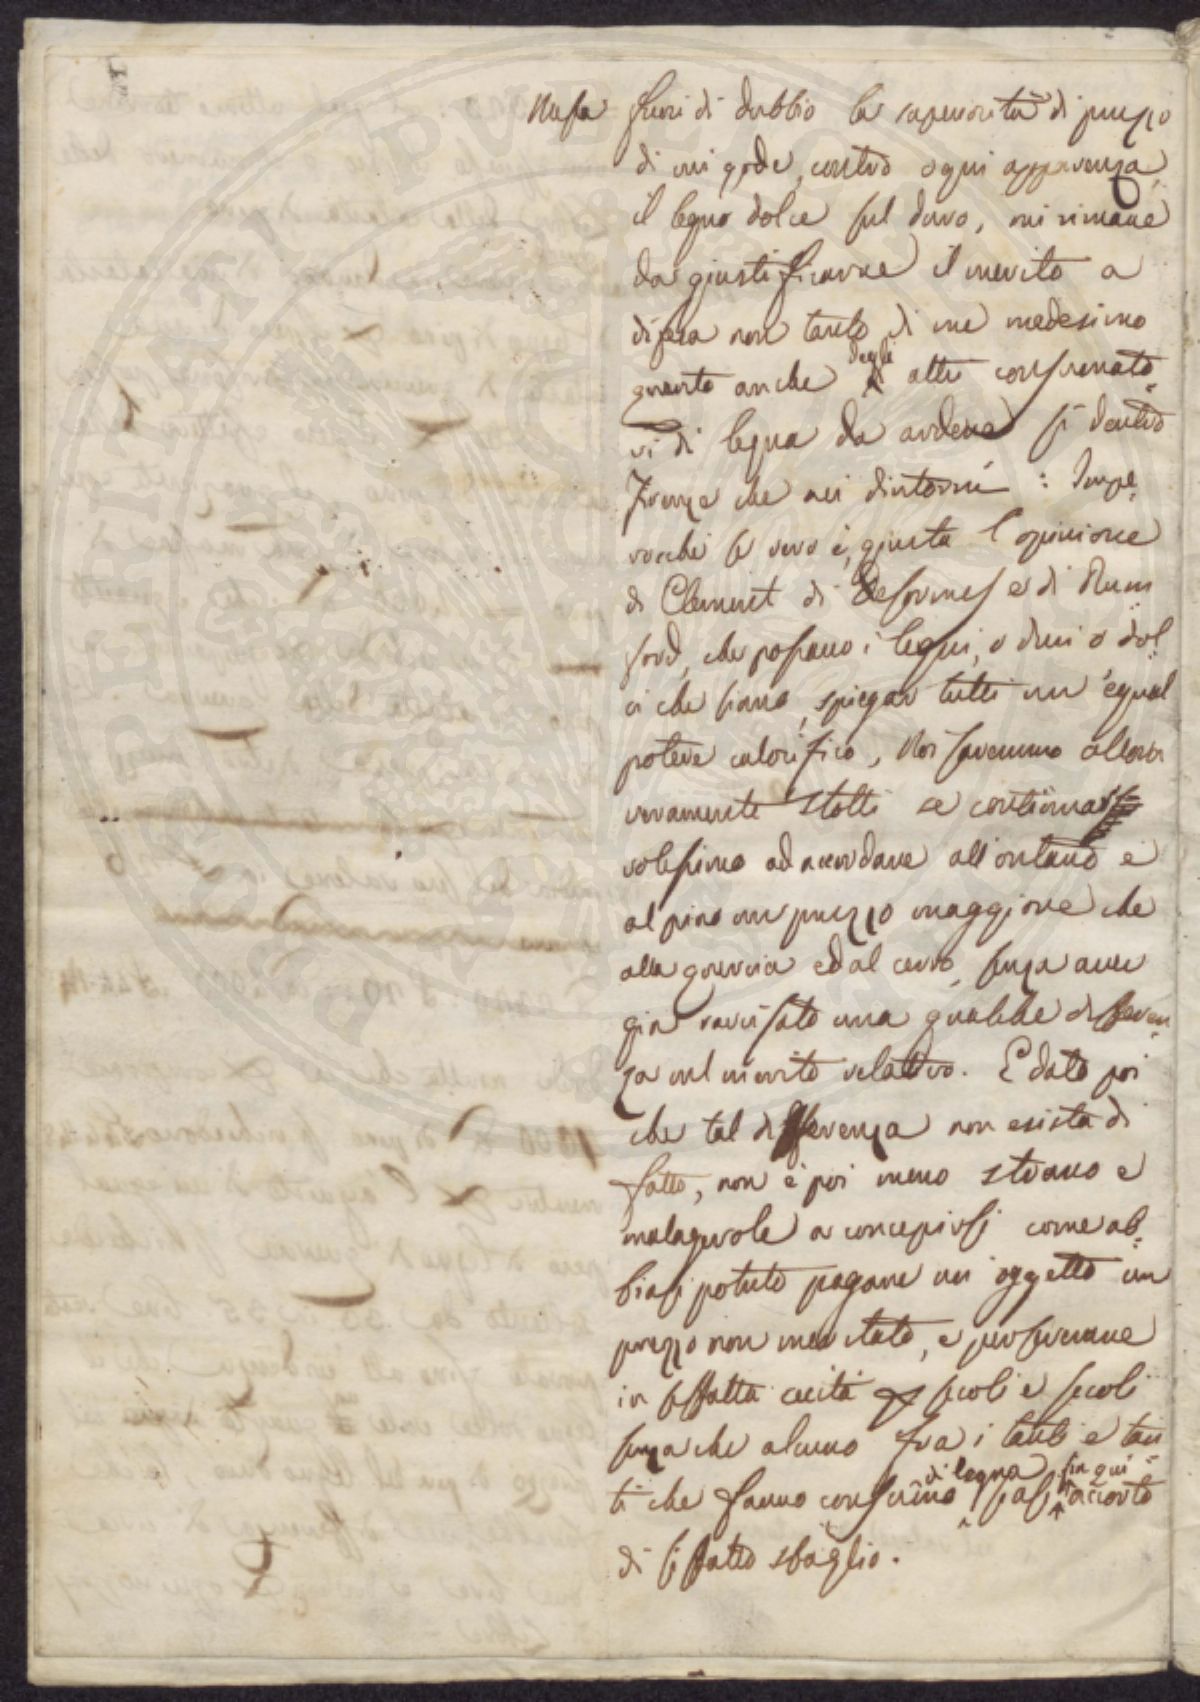 Messa fuori di dubbio la superiorità di prezzo
di cui gode, contro ogni apparenza,
il legno dolce sul duro, mi rimane
da giustificarne il merito a
difesa non tanto di me medesimo
quanto anche degli altri consumato=
ri di legna da ardere sì dentro
Firenze che nei dintorni: Impe=
rocchè se vero è, giusta l'opinione
di Clement di Desormes e di Rum
ford, che possano i legni, o duri o dol=
ci che siano, spiegar tutti un'egual
potere calorifico, Noi saremmo allora
veramente stolti se continuar
volessimo ad accordare all'ontano e
al pino un prezzo maggiore che
alla quercia ed al cerro, senza aver
gia ravvisato una qualche differen=
za nel merito relativo. E dato poi
che tal differenza non esista di
fatto, non è poi meno strano e
malagevole a concepirsi come ab=
biasi potuto pagare un oggetto un
prezzo non meritato, e perseverare
in siffatta cecità per secoli e secoli
senza che alcuno fra i tanti e tan
ti che fanno consumo di legna siasi fin qui accorto
di siffatto sbaglio.